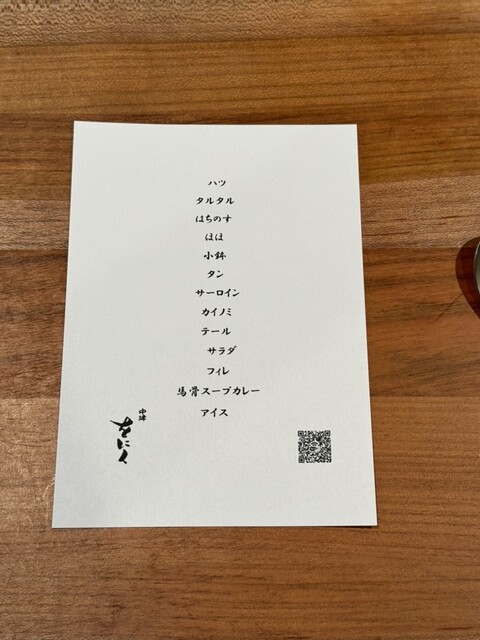 ハツ
タルタル
はちのす
ほほ
小鉢
タン
サーロイン
カイノミ
テール
サラダ
フィレ
馬骨スープカレー
アイス
をにく